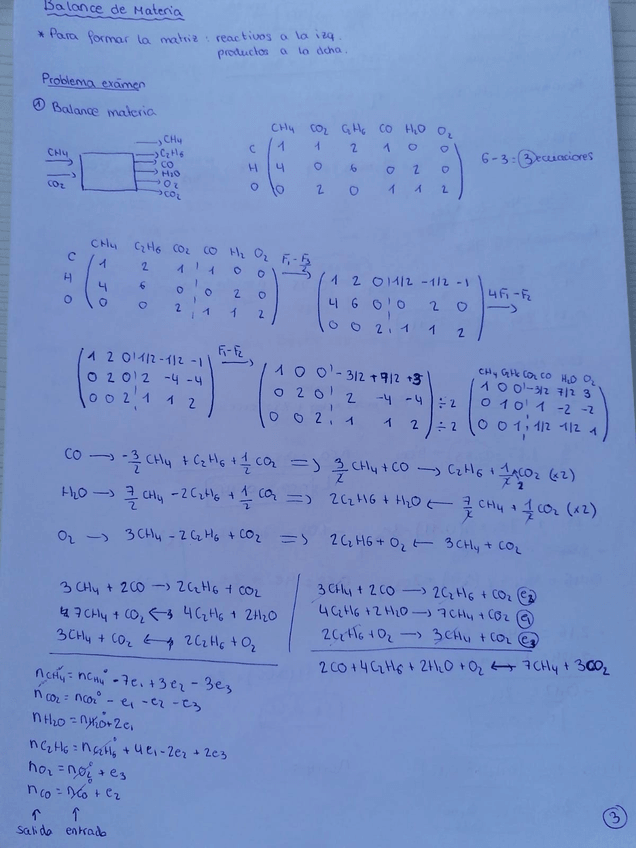 Balance de Materia
* Para formar la matriz : reactivos a la izq.
productos a la dcha.
Problema exámen
① Balance materia
CH4
CO2
CH4
C2H6
CO
H2O
O2
CO2
CH4 CO2 C2H6 CO H2O O2
C 1 1 2 1 0 0
H 4 0 6 0 2 0
O 0 2 0 1 1 2
6-3 = ③ ecuaciones
CH4 C2H6 CO2 CO H2 O2
C 1 2 1 1 0 0
H 4 6 0 0 2 0
O 0 0 2 1 1 2
F1 - F3/2
1 2 0 1/2 -1/2 -1
4 6 0 0 2 0
0 0 2 1 1 2
4F1-F2
1 2 0 1/2 -1/2 -1
0 2 0 2 -4 -4
0 0 2 1 1 2
F1-F2
1 0 0 -3/2 +7/2 +3
0 2 0 2 -4 -4 ÷2
0 0 2 1 1 2 ÷2
CH4 C2H6 CO2 CO H2O O2
1 0 0 -3/2 7/2 3
0 1 0 1 -2 -2
0 0 1 1/2 1/2 1
CO → -3/2 CH4 + C2H6 + 1/2 CO2 => 3/2 CH4 + CO → C2H6 + 1/2 CO2 (x2)
H2O → 7/2 CH4 - 2C2H6 + 1/2 CO2 => 2C2H6 + H2O ← 7/2 CH4 + 1/2 CO2 (x2)
O2 → 3CH4 - 2C2H6 + CO2 => 2C2H6 + O2 ← 3CH4 + CO2
3CH4 + 2CO → 2C2H6 + CO2
7CH4 + CO2 ↔ 4C2H6 + 2H2O
3CH4 + CO2 ↔ 2C2H6 + O2
3CH4 + 2CO → 2C2H6 + CO2 e2
4C2H6 + 2H2O → 7CH4 + CO2 e1
2C2H6 + O2 → 3CH4 + CO2 e3
2CO + 4C2H6 + 2H2O + O2 ↔ 7CH4 + 3CO2
nCH4 = nCH4° - 7e1 + 3e2 - 3e3
nCO2 = nCO2° - e1 - e2 - e3
nH2O = nH2O° + 2e1
nC2H6 = nC2H6° + 4e1 - 2e2 + 2e3
nO2 = nO2° + e3
nCO = nCO + e2
↑ ↑
salida entrada
③